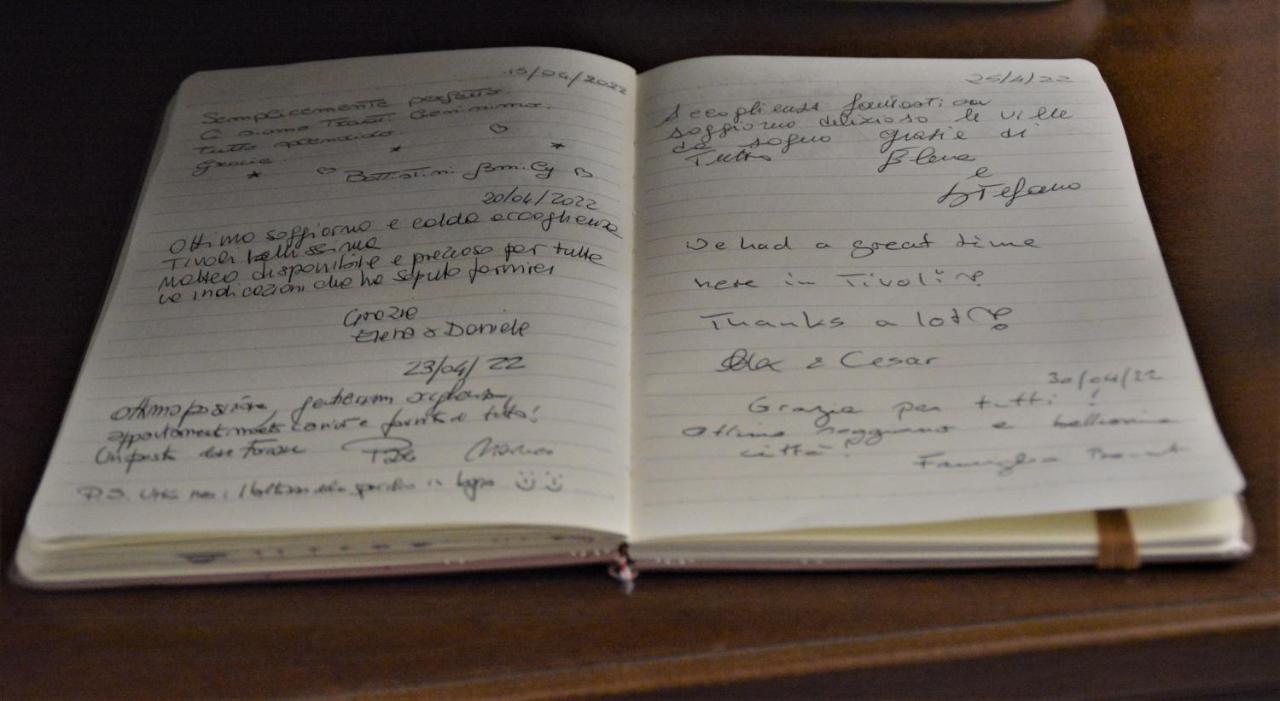 15/04/2022
Semplicemente perfetto
Ci siamo trovati benissimo.
tutto splendido
Grazie.
Battistini Family
20/04/2022
Ottimo soggiorno e calda accoglienza
Tivoli bellissima
Matteo disponibile e prezioso per tutte
le indicazioni che ha saputo fornirci
Grazie
Elena & Daniele
23/04/22
Ottima posizione,
e fornito di tutto!
P.S.
25/4/22
Accoglienza fantastica
soggiorno delizioso le ville
da sogno grazie di
Tutto Elena
e
Stefano
We had a great time
here in Tivoli
Thanks a lot
& Cesar
30/04/22
Grazie per tutti!
Ottimo soggiorno e bellissima
città! Famiglia